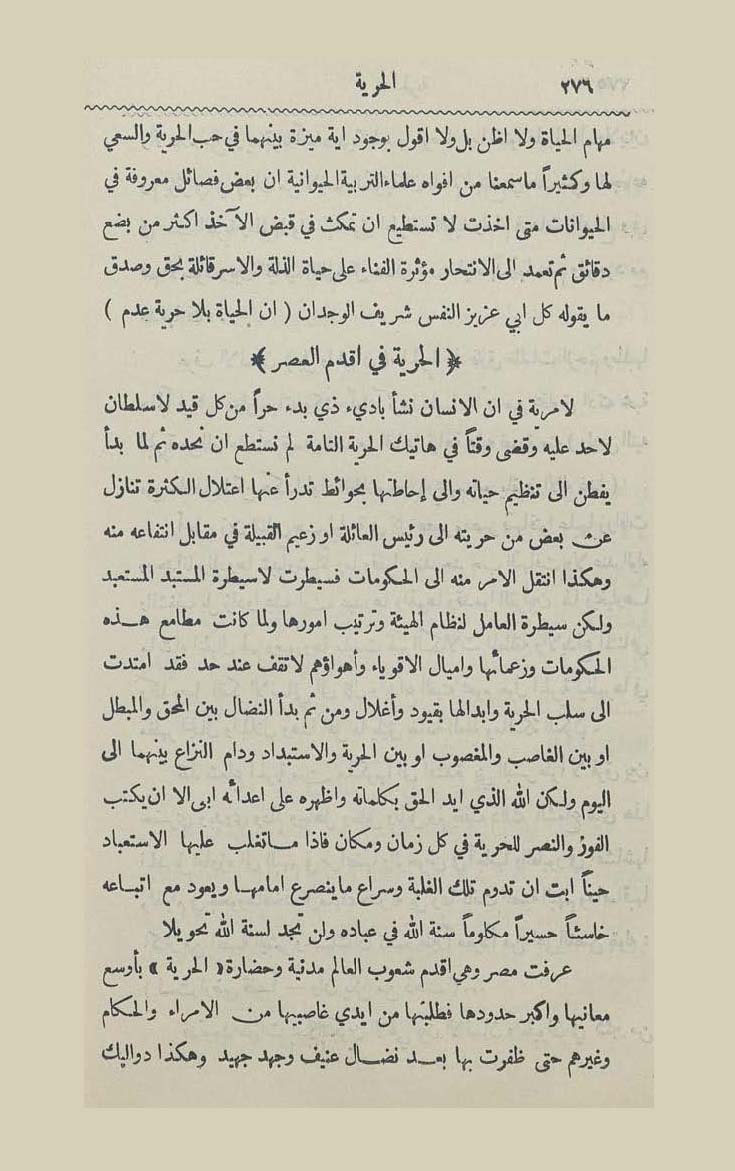 ٢٧٦ الحرية
مهام الحياة ولا اظن بل ولا اقول بوجود اية ميزة بينهما في حب الحرية والسعي
لها وكثيراً ما سمعنا من افواه علماء التربية الحيوانية ان بعض فصائل معروفة في
الحيوانات متى اخذت لا تستطيع ان تمكث في قبض الآخذ اكثر من بضع
دقائق ثم تعمد الى الانتحار مؤثرة الفناء على حياة الذلة والاسر قائلة بحق وصدق
ما يقوله كل ابي عزيز النفس شريف الوجدان ( ان الحياة بلا حرية عدم )
﴿ الحرية في اقدم العصر ﴾
لا مرية في ان الانسان نشأ باديء ذي بدء حراً من كل قيد لا سلطان
لاحد عليه وقضى وقتاً في هاتيك الحرية التامة لم نستطع ان نحده ثم لما بدأ
يفطن الى تنظيم حياته والى إحاطتها بحوائط تدرأ عنها اعتلال الكثرة تنازل
عن بعض من حريته الى رئيس العائلة او زعيم القبيلة في مقابل انتفاعه منه
وهكذا انتقل الامر منه الى الحكومات فسيطرت لا سيطرة المستبد المستعبد
ولكن سيطرة العامل لنظام الهيئة وترتيب امورها ولما كانت مطامع هذه
الحكومات وزعمائها واميال الاقوياء وأهواؤهم لا تقف عند حد فقد امتدت
الى سلب الحرية وابدالها بقيود وأغلال ومن ثم بدأ النضال بين المحق والمبطل
او بين الغاصب والمغصوب او بين الحرية والاستبداد ودام النزاع بينهما الى
اليوم ولكن الله الذي ايد الحق بكلماته واظهره على اعدائه ابى الا ان يكتب
الفوز والنصر للحرية في كل زمان ومكان فاذا ما تغلب عليها الاستعباد
حيناً ابت ان تدوم تلك الغلبة وسراع ما ينصرع امامها ويعود مع اتباعه
خاسئاً حسيراً مكلوماً سنة الله في عباده ولن تجد لسنة الله تحويلا
عرفت مصر وهي اقدم شعوب العالم مدنية وحضارة « الحرية » بأوسع
معانيها واكبر حدودها فطلبتها من ايدي غاصبيها من الامراء والحكام
وغيرهم حتى ظفرت بها بعد نضال عنيف وجهد جهيد وهكذا دواليك